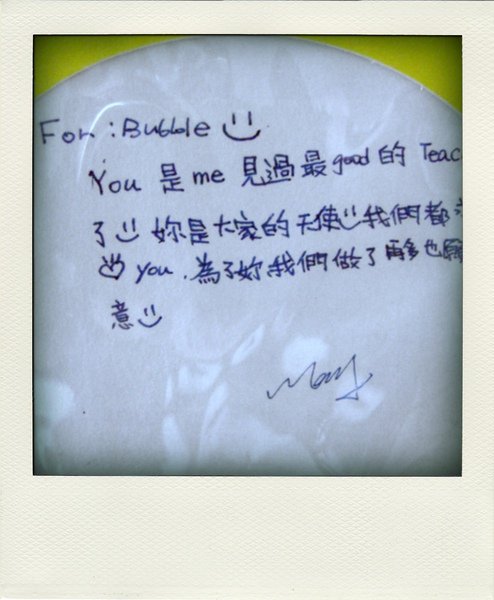 For : Bubble
You 是 me 見過最 good 的 Teac
了 妳是大家的天使 我們都
you. 為了妳, 我們做了再多也願
意